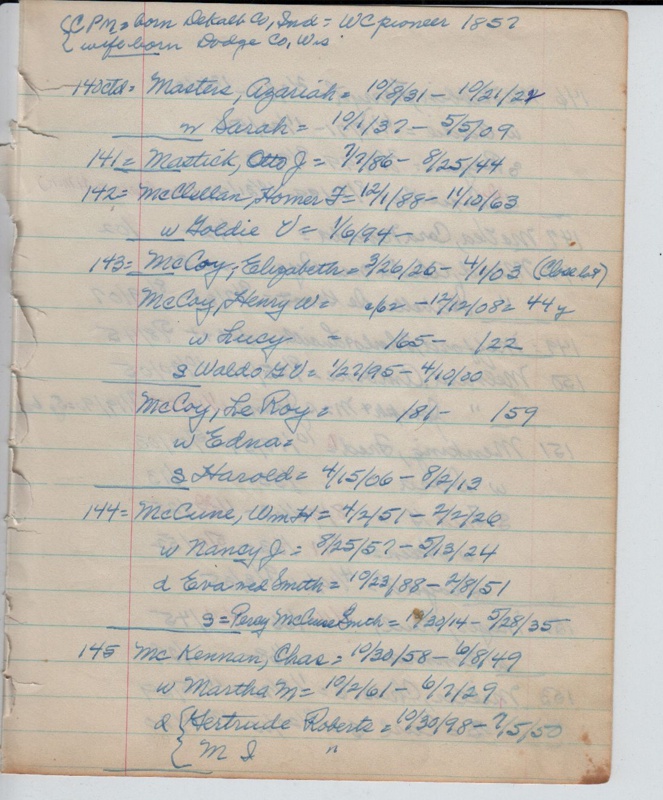 {C P M = born DeKalb Co, Ind = WC pioneer 1857
{wife born Dodge Co, Wis
140 ctd = Masters, Azariah = 10/8/31 - 10/21/27
w Sarah = 10/1/37 - 5/5/09
141 = Mastick, Otto J = 7/7/86 - 8/25/44
142 = McClellan, Homer F = 12/1/88 - 11/10/63
w Goldie V = 1/6/94 -
143 = McCoy, Elizabeth = 3/26/26 - 4/1/03 (Close lot)
McCoy, Henry W = c/62 - 12/12/08 = 44 y
w Lucy = /65 - /22
s Waldo G V = 1/27/95 - 4/10/00
McCoy, Le Roy = /81 - /59
w Edna =
s Harold = 4/15/06 - 8/2/13
144 = McCune, Wm H = 4/2/51 - 2/2/26
w Nancy J = 8/25/57 - 5/13/24
d Eva wed Smith = 10/23/88 - 2/8/51
s = Percy McCune Smith = 10/30/14 - 5/28/35
145 McKennan, Chas = 10/30/58 - 6/8/49
w Martha M = 10/2/61 - 6/7/29
d {Gertrude Roberts = 10/30/98 - 7/5/50
{M I "